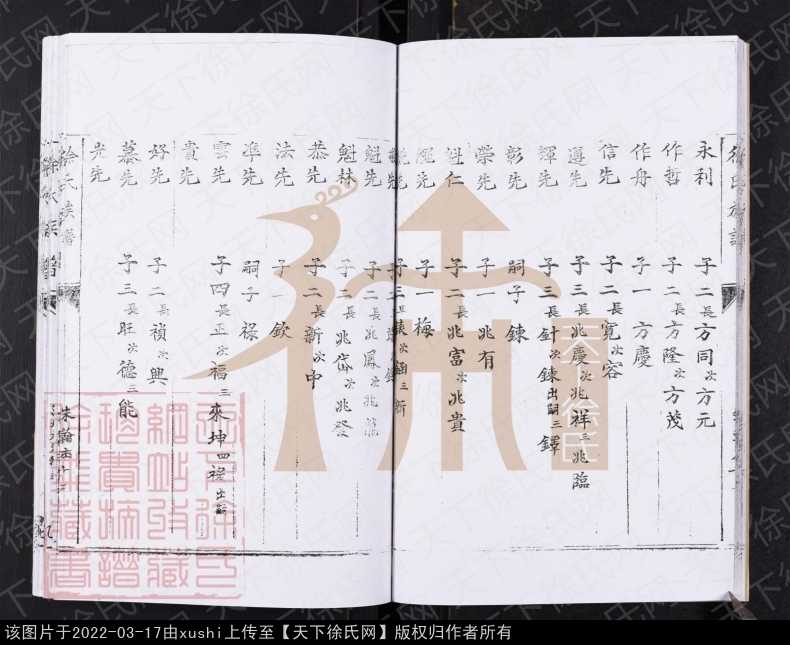 徐氏族譜
永利 子二長方同次方元
作哲 子二長方隆次方茂
作舟 子一方慶
信先 子二長寬次容
遵先 子三長兆慶次兆祥三兆臨
輝先 子三長針次鍊出嗣三鐸
彰先 嗣子鍊
榮先 子一兆有
魁仁 子二長兆富次兆貴
耀先 子一梅
魁先 子二長兆鳳次兆
魁林 子二長兆岱次兆發
恭先 子二長新次申
法先 子一欽
準先 嗣子祿
雲先 子四長正次福三來坤四祿出嗣
貴先
好先 子二長禎次興
慕先 子三長旺次德三能
光先
徐氏族譜
秦皇徐氏
天下徐氏网
该图片于2022-03-17由xushi上传至【天下徐氏网】版权归作者所有